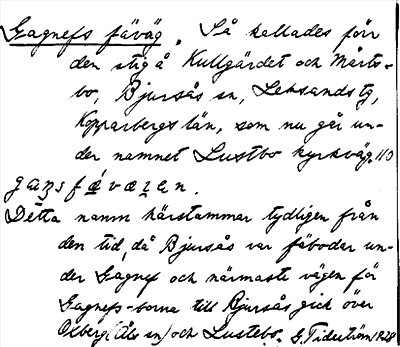 Gagnefs fäväg. Så kallades förr
den stig å Kullgärdet och Mårts-
bo, Bjursås sn, Leksands tg,
Kopparbergs län, som nu går un-
der namnet Lustbo kyrkväg. 1/3
gaŋsfǽvaʒan.
Detta namn härstammar tydligen från
den tid, då Bjursås var fäbodar un-
der Gagnef och närmaste vägen för
Gagnefs-borna till Bjursås gick över
Oxberg (Åls sn) och Lustebo. G. Tideström 1928